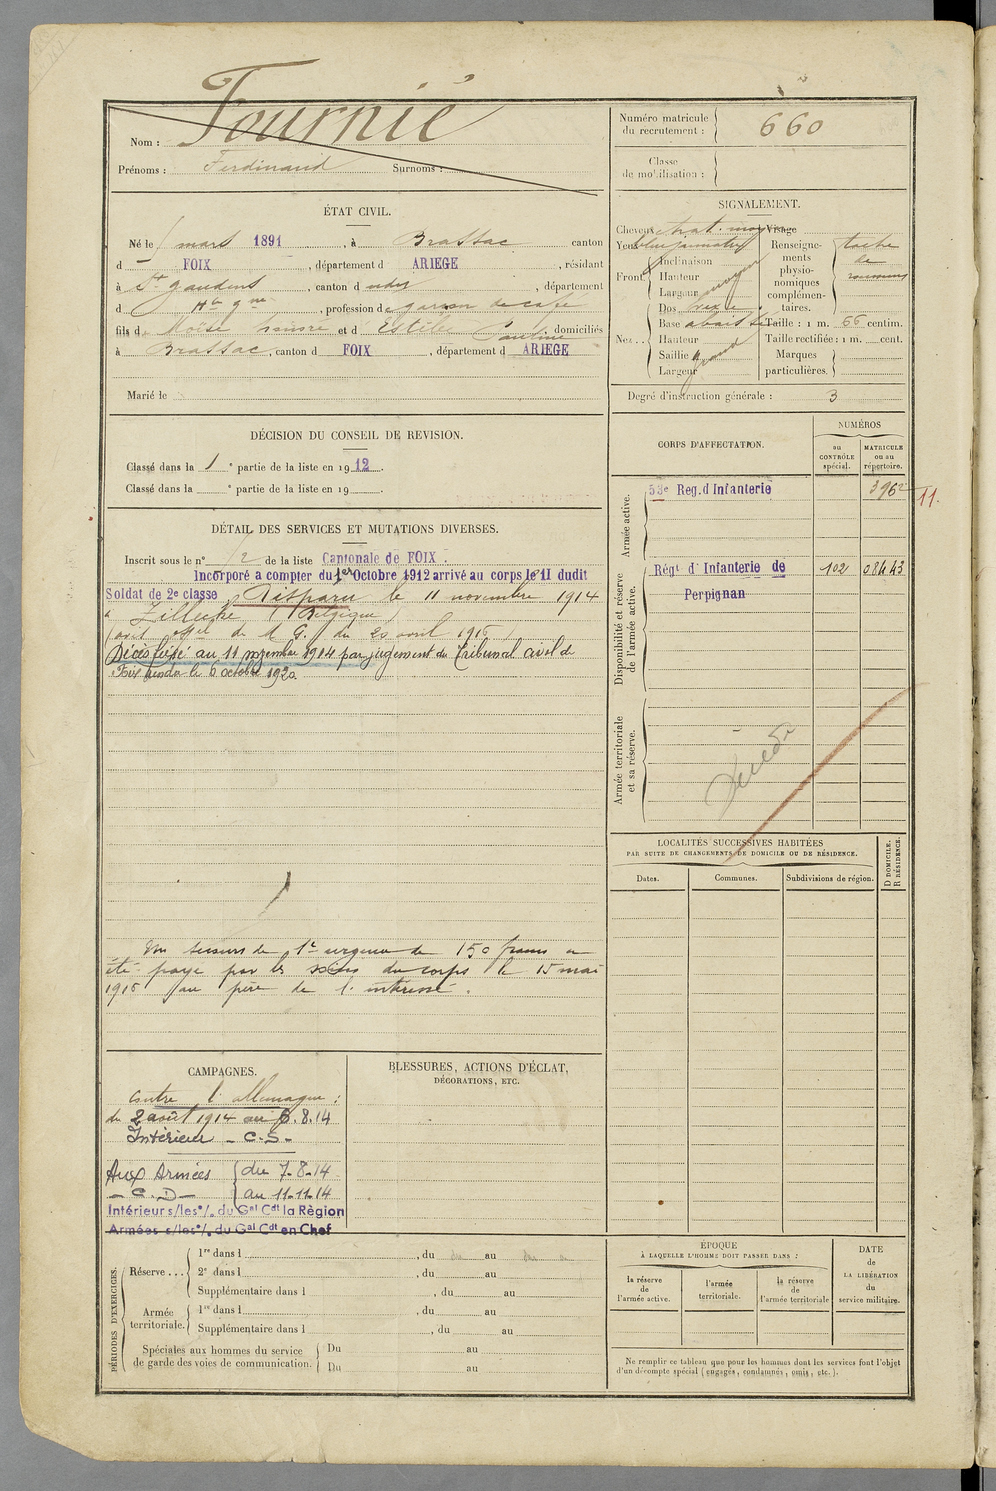 Nom : Fournié
Prénoms : Ferdinand Surnoms :
Numéro matricule du recrutement : 660
Classe de mobilisation :
ÉTAT CIVIL.
Né le mars 1891, à Brassac canton
d FOIX, département d ARIEGE, résidant
à St gaudens, canton d udit, département
d Hte gne, profession de garçon de café
fils de Moïse et d Estelle Pauline domiciliés
à Brassac, canton d FOIX, département d ARIEGE
Marié le
SIGNALEMENT.
Cheveux chat. moyen Visage
Yeux
Front
Inclinaison
Hauteur moyen
Largeur
Dos
Nez...
Base abaissée
Hauteur
Saillie grand
Largeur
Renseignements physionomiques complémentaires.
tache de rousseurs
Taille : 1 m. 66 centim.
Taille rectifiée : 1 m. cent.
Marques particulières.
Degré d'instruction générale : 3
DÉCISION DU CONSEIL DE REVISION.
Classé dans la 1e partie de la liste en 1912.
Classé dans la e partie de la liste en 19
DÉTAIL DES SERVICES ET MUTATIONS DIVERSES.
Inscrit sous le n° 12 de la liste Cantonale de FOIX.
Incorporé a compter du 1er Octobre 1912 arrivé au corps le 11 dudit
Soldat de 2e classe, Disparu le 11 novembre 1914
à Zillecke (Belgique)
(avis offel du M G. du 20 avril 1915)
Décès fixé au 11 novembre 1914 par jugement du Tribunal civil de
Foix rendu le 6 octobre 1920.
Un secours de 1re urgence de 150 francs a
été payé par les soins du corps le 15 mai
1915 au père de l'intéressé.
CORPS D'AFFECTATION.
NUMÉROS
au CONTRÔLE spécial.
MATRICULE ou au répertoire.
Armée active.
53e Reg. d'Infanterie 3962
11.
Disponibilité et réserve de l'armée active.
Régt d'Infanterie de Perpignan 102 08443
Armée territoriale et sa réserve.
Décédé
LOCALITÉS SUCCESSIVES HABITÉES
PAR SUITE DE CHANGEMENTS DE DOMICILE OU DE RÉSIDENCE.
Dates. Communes. Subdivisions de région.
D DOMICILE. R RÉSIDENCE.
CAMPAGNES.
Contre l'allemagne :
du 2 août 1914 au 6.8.14
Intérieur - C.S-
Aux Armées du 7-8-14
- C.D - au 11-11-14
Intérieur s/les °/. du Gal Cdt la Règion
Armées s/les °/. du Gal Cdt en Chef
BLESSURES, ACTIONS D'ÉCLAT,
DÉCORATIONS, ETC.
PÉRIODES D'EXERCICES.
Réserve...
1re dans l , du au
2e dans l , du au
Supplémentaire dans l , du au
Armée territoriale.
1re dans l , du au
Supplémentaire dans l , du au
Spéciales aux hommes du service de garde des voies de communication.
Du au
Du au
ÉPOQUE
À LAQUELLE L'HOMME DOIT PASSER DANS :
la réserve de l'armée active.
l'armée territoriale.
la réserve de l'armée territoriale
DATE de LA LIBÉRATION du service militaire.
Ne remplir ce tableau que pour les hommes dont les services font l'objet
d'un décompte spécial (engagés, condamnés, omis, etc.).